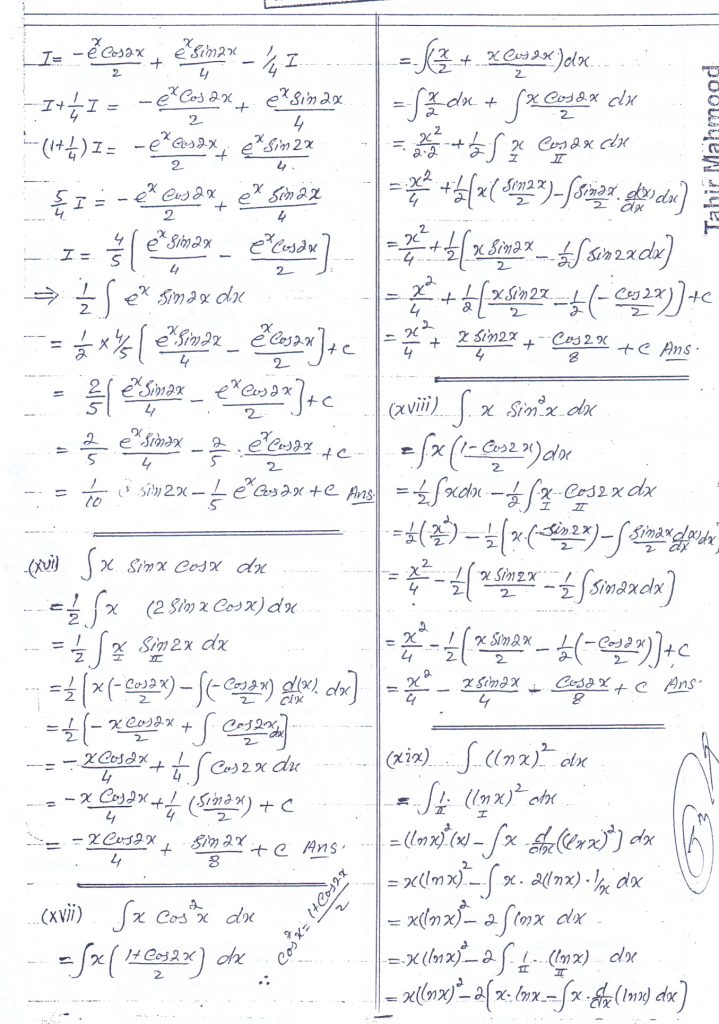 I = -eˣCos2x/2 + eˣSin2x/4 - 1/4 I
I + 1/4 I = -eˣCos2x/2 + eˣSin2x/4
(1+1/4) I = -eˣCos2x/2 + eˣSin2x/4.
5/4 I = -eˣCos2x/2 + eˣSin2x/4
I = 4/5 [eˣSin2x/4 - eˣCos2x/2]
⇒ 1/2 ∫ eˣ Sin2x dx
= 1/2 × 4/5 [eˣSin2x/4 - eˣCos2x/2] + c
= 2/5 [eˣSin2x/4 - eˣCos2x/2] + c
= 2/5 eˣSin2x/4 - 2/5 · eˣCos2x/2 + c
= 1/10 sin2x - 1/5 eˣCos2x + c Ans.
(xvi) ∫ x Sinx Cosx dx
= 1/2 ∫ x (2 Sinx Cosx) dx
= 1/2 ∫ x Sin2x dx
I II
= 1/2 [x(-Cos2x/2) - ∫(-Cos2x/2) d(x)/dx · dx]
= 1/2 [-xCos2x/2 + ∫ Cos2x/2 dx]
= -xCos2x/4 + 1/4 ∫ Cos2x dx
= -xCos2x/4 + 1/4 (Sin2x/2) + c
= -xCos2x/4 + Sin2x/8 + c Ans.
(xvii) ∫ x Cos²x dx
= ∫ x (1+Cos2x/2) dx
∴ Cos²x = 1+Cos2x/2
= ∫(x/2 + xCos2x/2) dx
= ∫ x/2 dx + ∫ xCos2x/2 dx
= x²/2·2 + 1/2 ∫ x Cos2x dx
I II
= x²/4 + 1/2 [x(Sin2x/2) - ∫ Sin2x/2 · d(x)/dx dx]
= x²/4 + 1/2 [xSin2x/2 - 1/2 ∫ Sin2x dx]
= x²/4 + 1/2 [xSin2x/2 - 1/2 (-Cos2x/2)] + c
= x²/4 + xSin2x/4 + Cos2x/8 + c Ans.
(xviii) ∫ x Sin²x dx
= ∫ x (1-Cos2x/2) dx
= 1/2 ∫ x dx - 1/2 ∫ x Cos2x dx
I II
= 1/2 (x²/2) - 1/2 [x·(Sin2x/2) - ∫ Sin2x/2 d(x)/dx dx]
= x²/4 - 1/2 [xSin2x/2 - 1/2 ∫ Sin2x dx]
= x²/4 - 1/2 [xSin2x/2 - 1/2 (-Cos2x/2)] + c
= x²/4 - xSin2x/4 - Cos2x/8 + c Ans.
(xix) ∫ (lnx)² dx
= ∫ 1 · (lnx)² dx
II I
= (lnx)²(x) - ∫ x d/dx ((lnx)²) dx
= x(lnx)² - ∫ x · 2(lnx) · 1/x dx
= x(lnx)² - 2 ∫ lnx dx
= x(lnx)² - 2 ∫ 1 · (lnx) dx
= x(lnx)² - 2 [x·lnx - ∫ x · d/dx (lnx) dx]
Tahir Mahmood